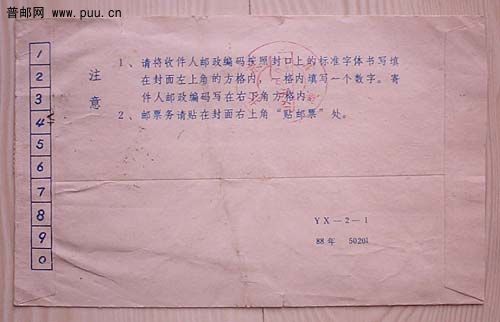 普邮网
www.puu.cn
1
2
3
4
5
6
7
8
9
0
注意
1、请将收件人邮政编码按照封口上的标准字体书写填
在封面左上角的方格内,一格内填写一个数字。寄
件人邮政编码写在右下角方格内。
2、邮票务请贴在封面右上角“贴邮票”处。
YX—2—1
88年 50201